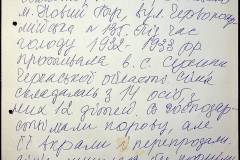 м. Новий Буг, вул. Червоно-
 № 135. Під час
голоду 1932-1933 рр
проживала в с.
Черкаської області. Сім'я
складалась з 14 осіб, з
них 12 дітей. В господар-
стві мали корову, але
її вкрали і перепродали.